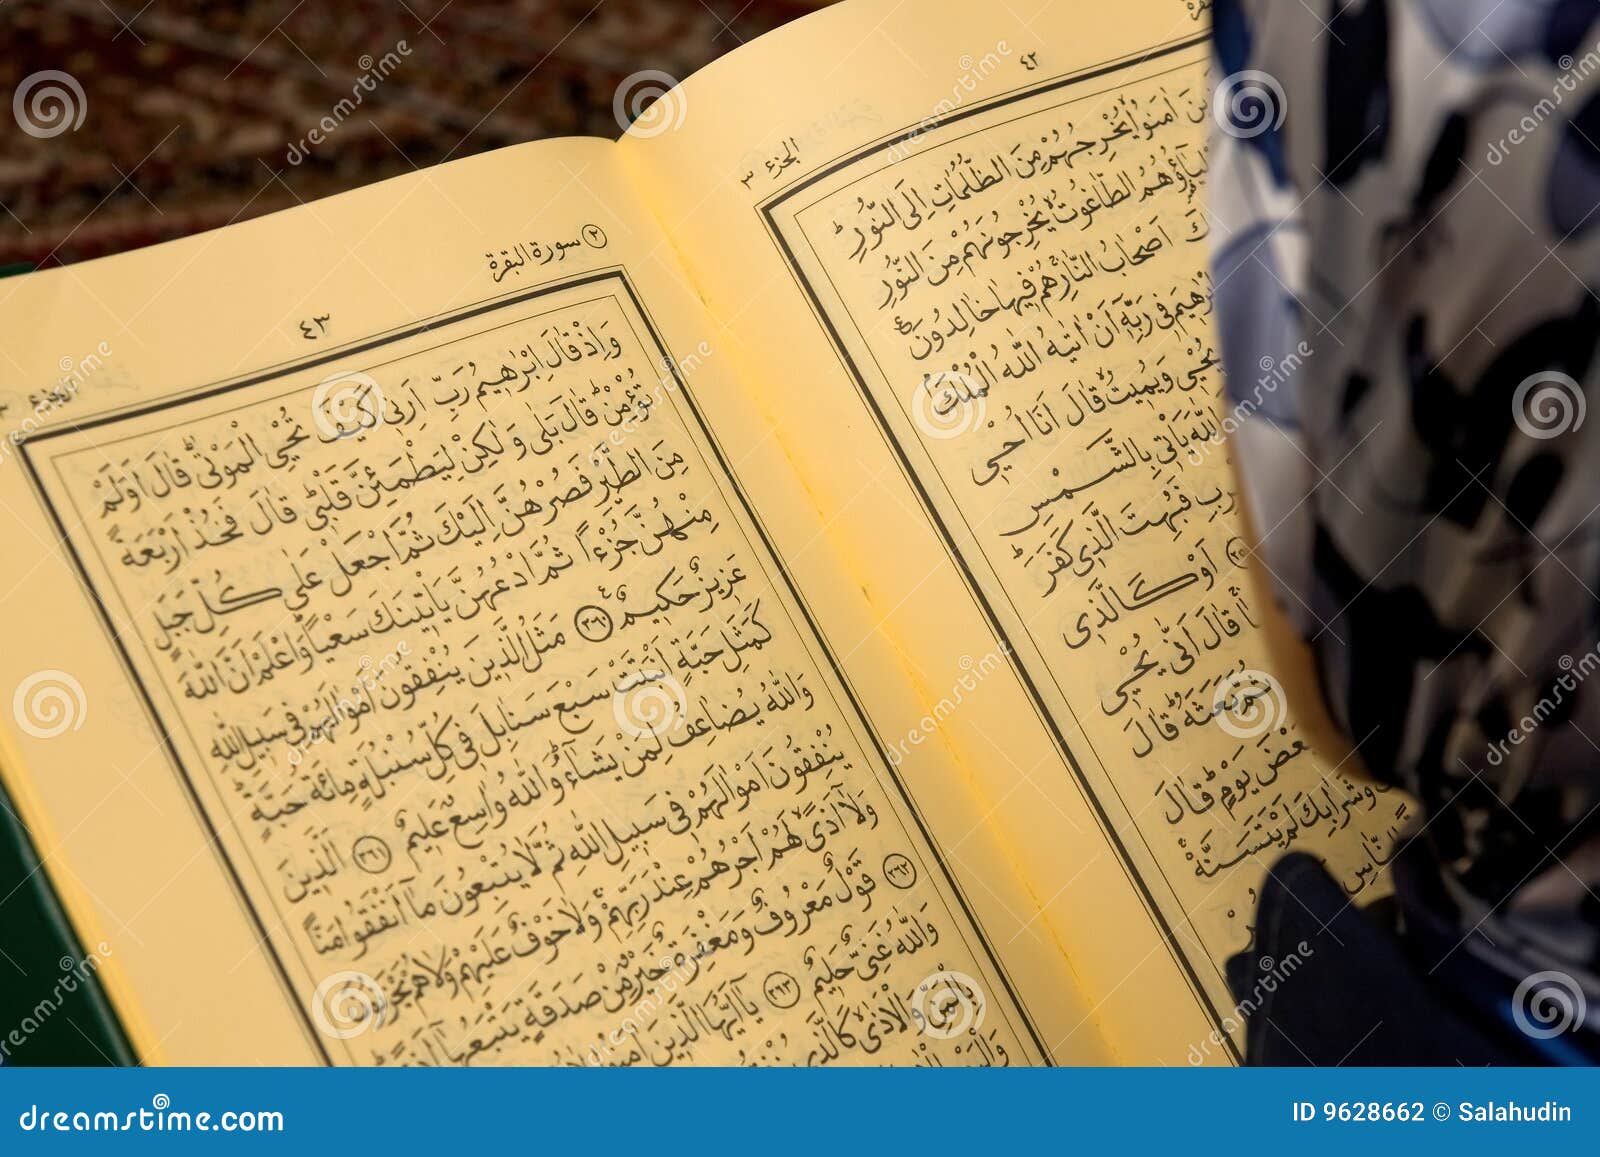 ٤٢
الجزء ٣
امَنُوا يُخْرِجُهُمْ مِنَ الظُّلُمَاتِ اِلَى النُّورِ
الطَّاغُوتُ يُخْرِجُونَهُمْ مِنَ النُّورِ
اَصْحَابُ النَّارِ هُمْ فِيهَا خَالِدُونَ
فِى رَبِّهٖ اَنْ اٰتٰيهُ اللّٰهُ الْمُلْكَ
يُحْيٖ وَيُمِيتُ قَالَ اَنَا اُحْيٖ
يَاْتٖى بِالشَّمْسِ
فَبُهِتَ الَّذٖى كَفَرَ
اَوْ كَالَّذٖى
قَالَ اَنّٰى يُحْيٖ
ثُمَّ بَعَثَهُ قَالَ
بَعْضَ يَوْمٍ قَالَ
وَشَرَابِكَ لَمْ يَتَسَنَّهْ
٢ سورة البقرة
٤٣
الجزء ٣
وَاِذْ قَالَ اِبْرٰهٖيمُ رَبِّ اَرِنٖى كَيْفَ تُحْيِ الْمَوْتٰى قَالَ اَوَلَمْ
تُؤْمِنْ قَالَ بَلٰى وَلٰكِنْ لِيَطْمَئِنَّ قَلْبٖى قَالَ فَخُذْ اَرْبَعَةً
مِنَ الطَّيْرِ فَصُرْهُنَّ اِلَيْكَ ثُمَّ اجْعَلْ عَلٰى كُلِّ جَبَلٍ
مِنْهُنَّ جُزْءًا ثُمَّ ادْعُهُنَّ يَاْتٖينَكَ سَعْيًا وَاعْلَمْ اَنَّ اللّٰهَ
عَزٖيزٌ حَكٖيمٌ ٢٦٠ مَثَلُ الَّذٖينَ يُنْفِقُونَ اَمْوَالَهُمْ فٖى سَبٖيلِ اللّٰهِ
كَمَثَلِ حَبَّةٍ اَنْبَتَتْ سَبْعَ سَنَابِلَ فٖى كُلِّ سُنْبُلَةٍ مِائَةُ حَبَّةٍ
وَاللّٰهُ يُضَاعِفُ لِمَنْ يَشَاءُ وَاللّٰهُ وَاسِعٌ عَلٖيمٌ ٢٦١ اَلَّذٖينَ
يُنْفِقُونَ اَمْوَالَهُمْ فٖى سَبٖيلِ اللّٰهِ ثُمَّ لَا يُتْبِعُونَ مَا اَنْفَقُوا مَنًّا
وَلَا اَذًى لَهُمْ اَجْرُهُمْ عِنْدَ رَبِّهِمْ وَلَا خَوْفٌ عَلَيْهِمْ وَلَا هُمْ يَحْزَنُونَ
٢٦٢ قَوْلٌ مَعْرُوفٌ وَمَغْفِرَةٌ خَيْرٌ مِنْ صَدَقَةٍ يَتْبَعُهَا اَذًى
وَاللّٰهُ غَنِىٌّ حَلٖيمٌ ٢٦٣ يَا اَيُّهَا الَّذٖينَ اٰمَنُوا
بِالْمَنِّ وَالْاَذٰى كَالَّذٖى
dreamstime.com
ID 9628662 © Salahudin